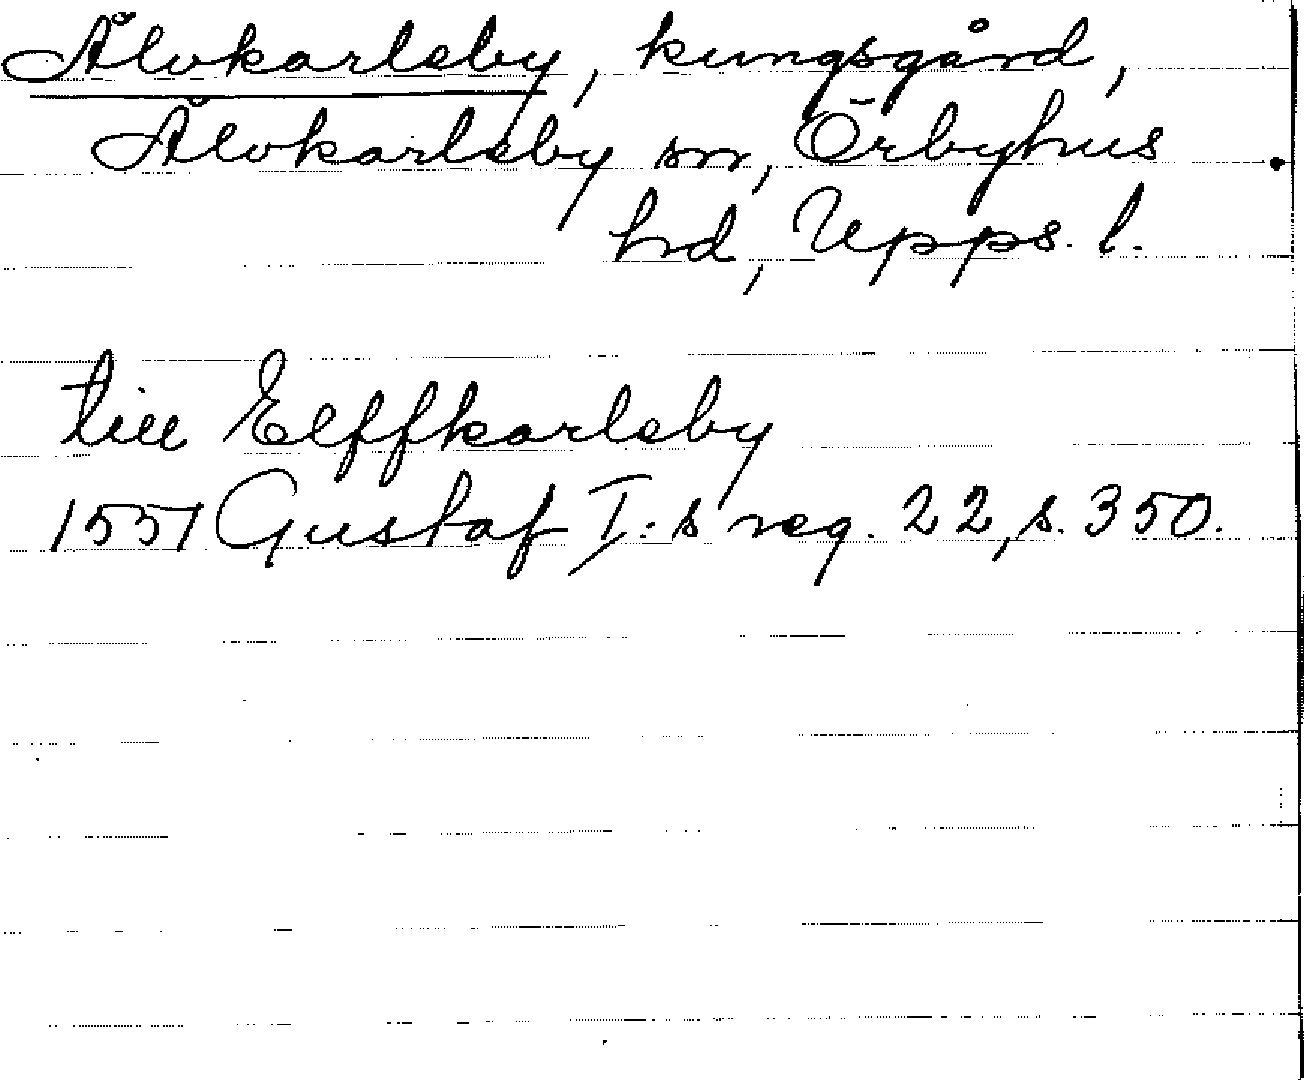 Älvkarleby, kungsgård,
Älvkarleby sn, Örbyhus
hd, Upps. l.
till Elffkarleby
1551 Gustaf I:s reg. 22, s. 350.